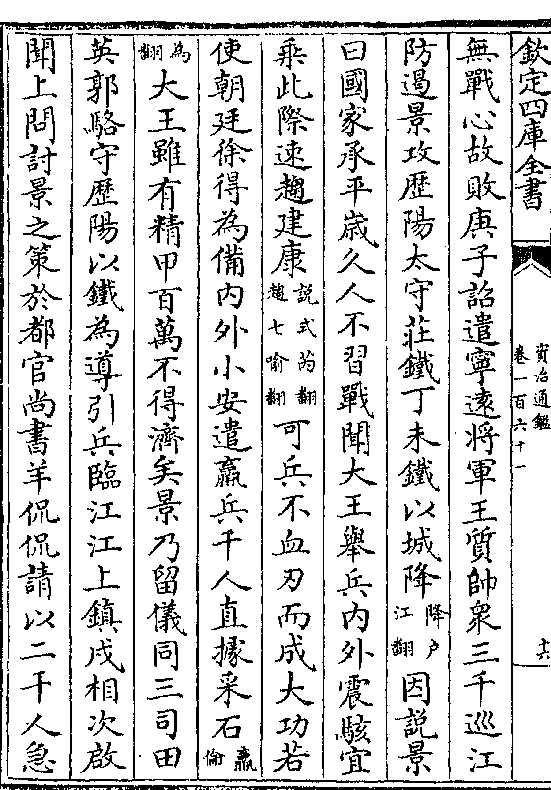 欽定四庫全書
資治通鑑
卷一百六十一
十六
無戰心故敗庚子詔遣寧遠將軍王質帥衆三千巡江
防遏景攻歷陽太守莊鐵丁未鐵以城降降户江翻因説景
曰國家承平歲久人不習戰聞大王舉兵内外震駭宜
乘此際速趨建康説式芮翻趨七喻翻可兵不血刃而成大功若
使朝廷徐得為備内外小安遣羸兵千人直據采石羸倫
為翻大王雖有精甲百萬不得濟矣景乃留儀同三司田
英郭駱守歷陽以鐵為導引兵臨江江上鎮戍相次啟
聞上問討景之策於都官尚書羊侃侃請以二千人急